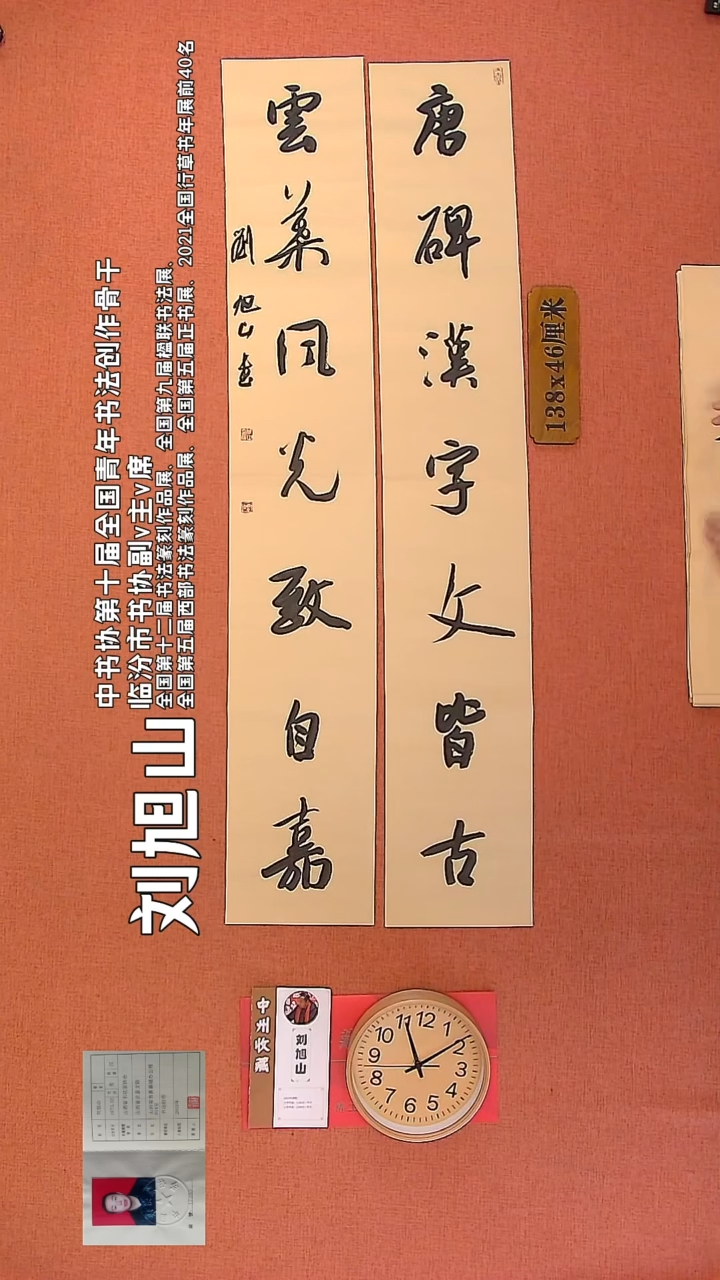 唐碑漢字文皆古
雲葉風光致自嘉
劉旭山書
138x46厘米
刘旭山
中书协第十届全国青年书法创作骨干
临汾市书协副v主v席
全国第十二届书法篆刻作品展、全国第九届楹联书法展、
全国第五届西部书法篆刻作品展、全国第五届正书展、2021全国行草书年展前40名
刘旭山
11 12 1
2
3
4
5
6
7
8
9